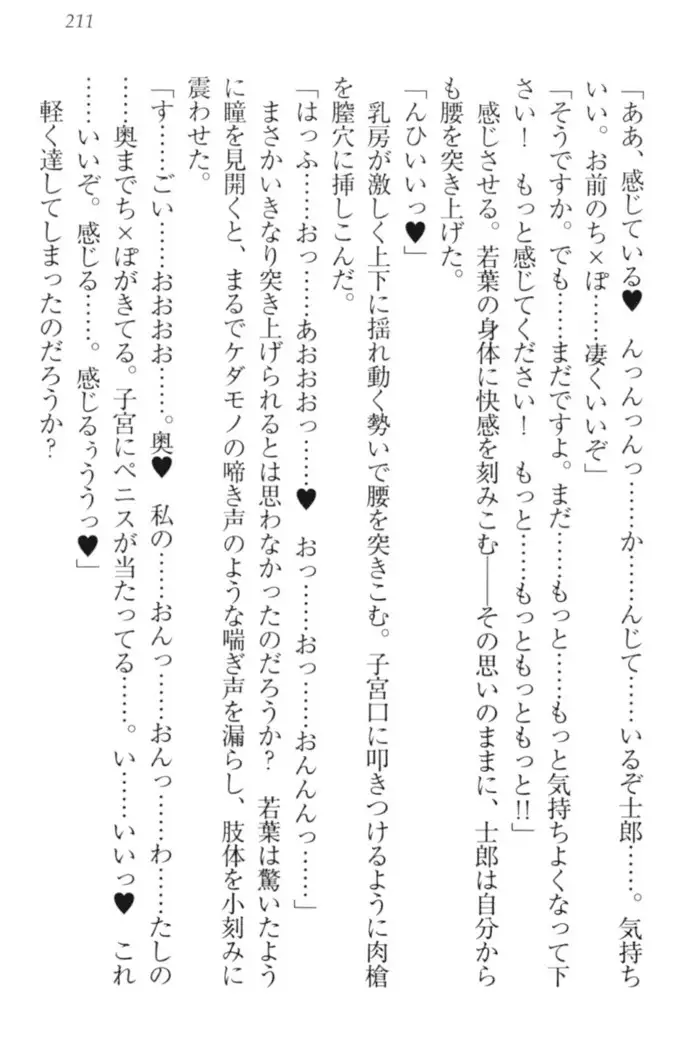 211
「ああ、感じている♥　んっんっんっ……か……んじて……いるぞ士郎……。気持ち
いい。お前のち×ぽ……凄くいいぞ」
「そうですか。でも……まだですよ。まだ……もっと……もっと気持ちよくなって下
さい！　もっと感じてください！　もっと……もっともっと!!」
感じさせる。若葉の身体に快感を刻みこむ――その思いのままに、士郎は自分から
も腰を突き上げた。
「んひいいっ♥」
乳房が激しく上下に揺れ動く勢いで腰を突きこむ。子宮口に叩きつけるように肉槍
を膣穴に挿しこんだ。
「はっふ……おっ……あおおおっ……♥　おっ……おっ……おんんんっ……」
まさかいきなり突き上げられるとは思わなかったのだろうか？　若葉は驚いたよう
に瞳を見開くと、まるでケダモノの啼き声のような喘ぎ声を漏らし、肢体を小刻みに
震わせた。
「す……ごい……おおおお……。奥♥　私の……おんっ……おんっ……わ……たしの
……奥までち×ぽがきてる。子宮にペニスが当たってる……。い……いいっ♥　これ
……いいぞ。感じる……。感じるぅううっ♥」
軽く達してしまったのだろうか？